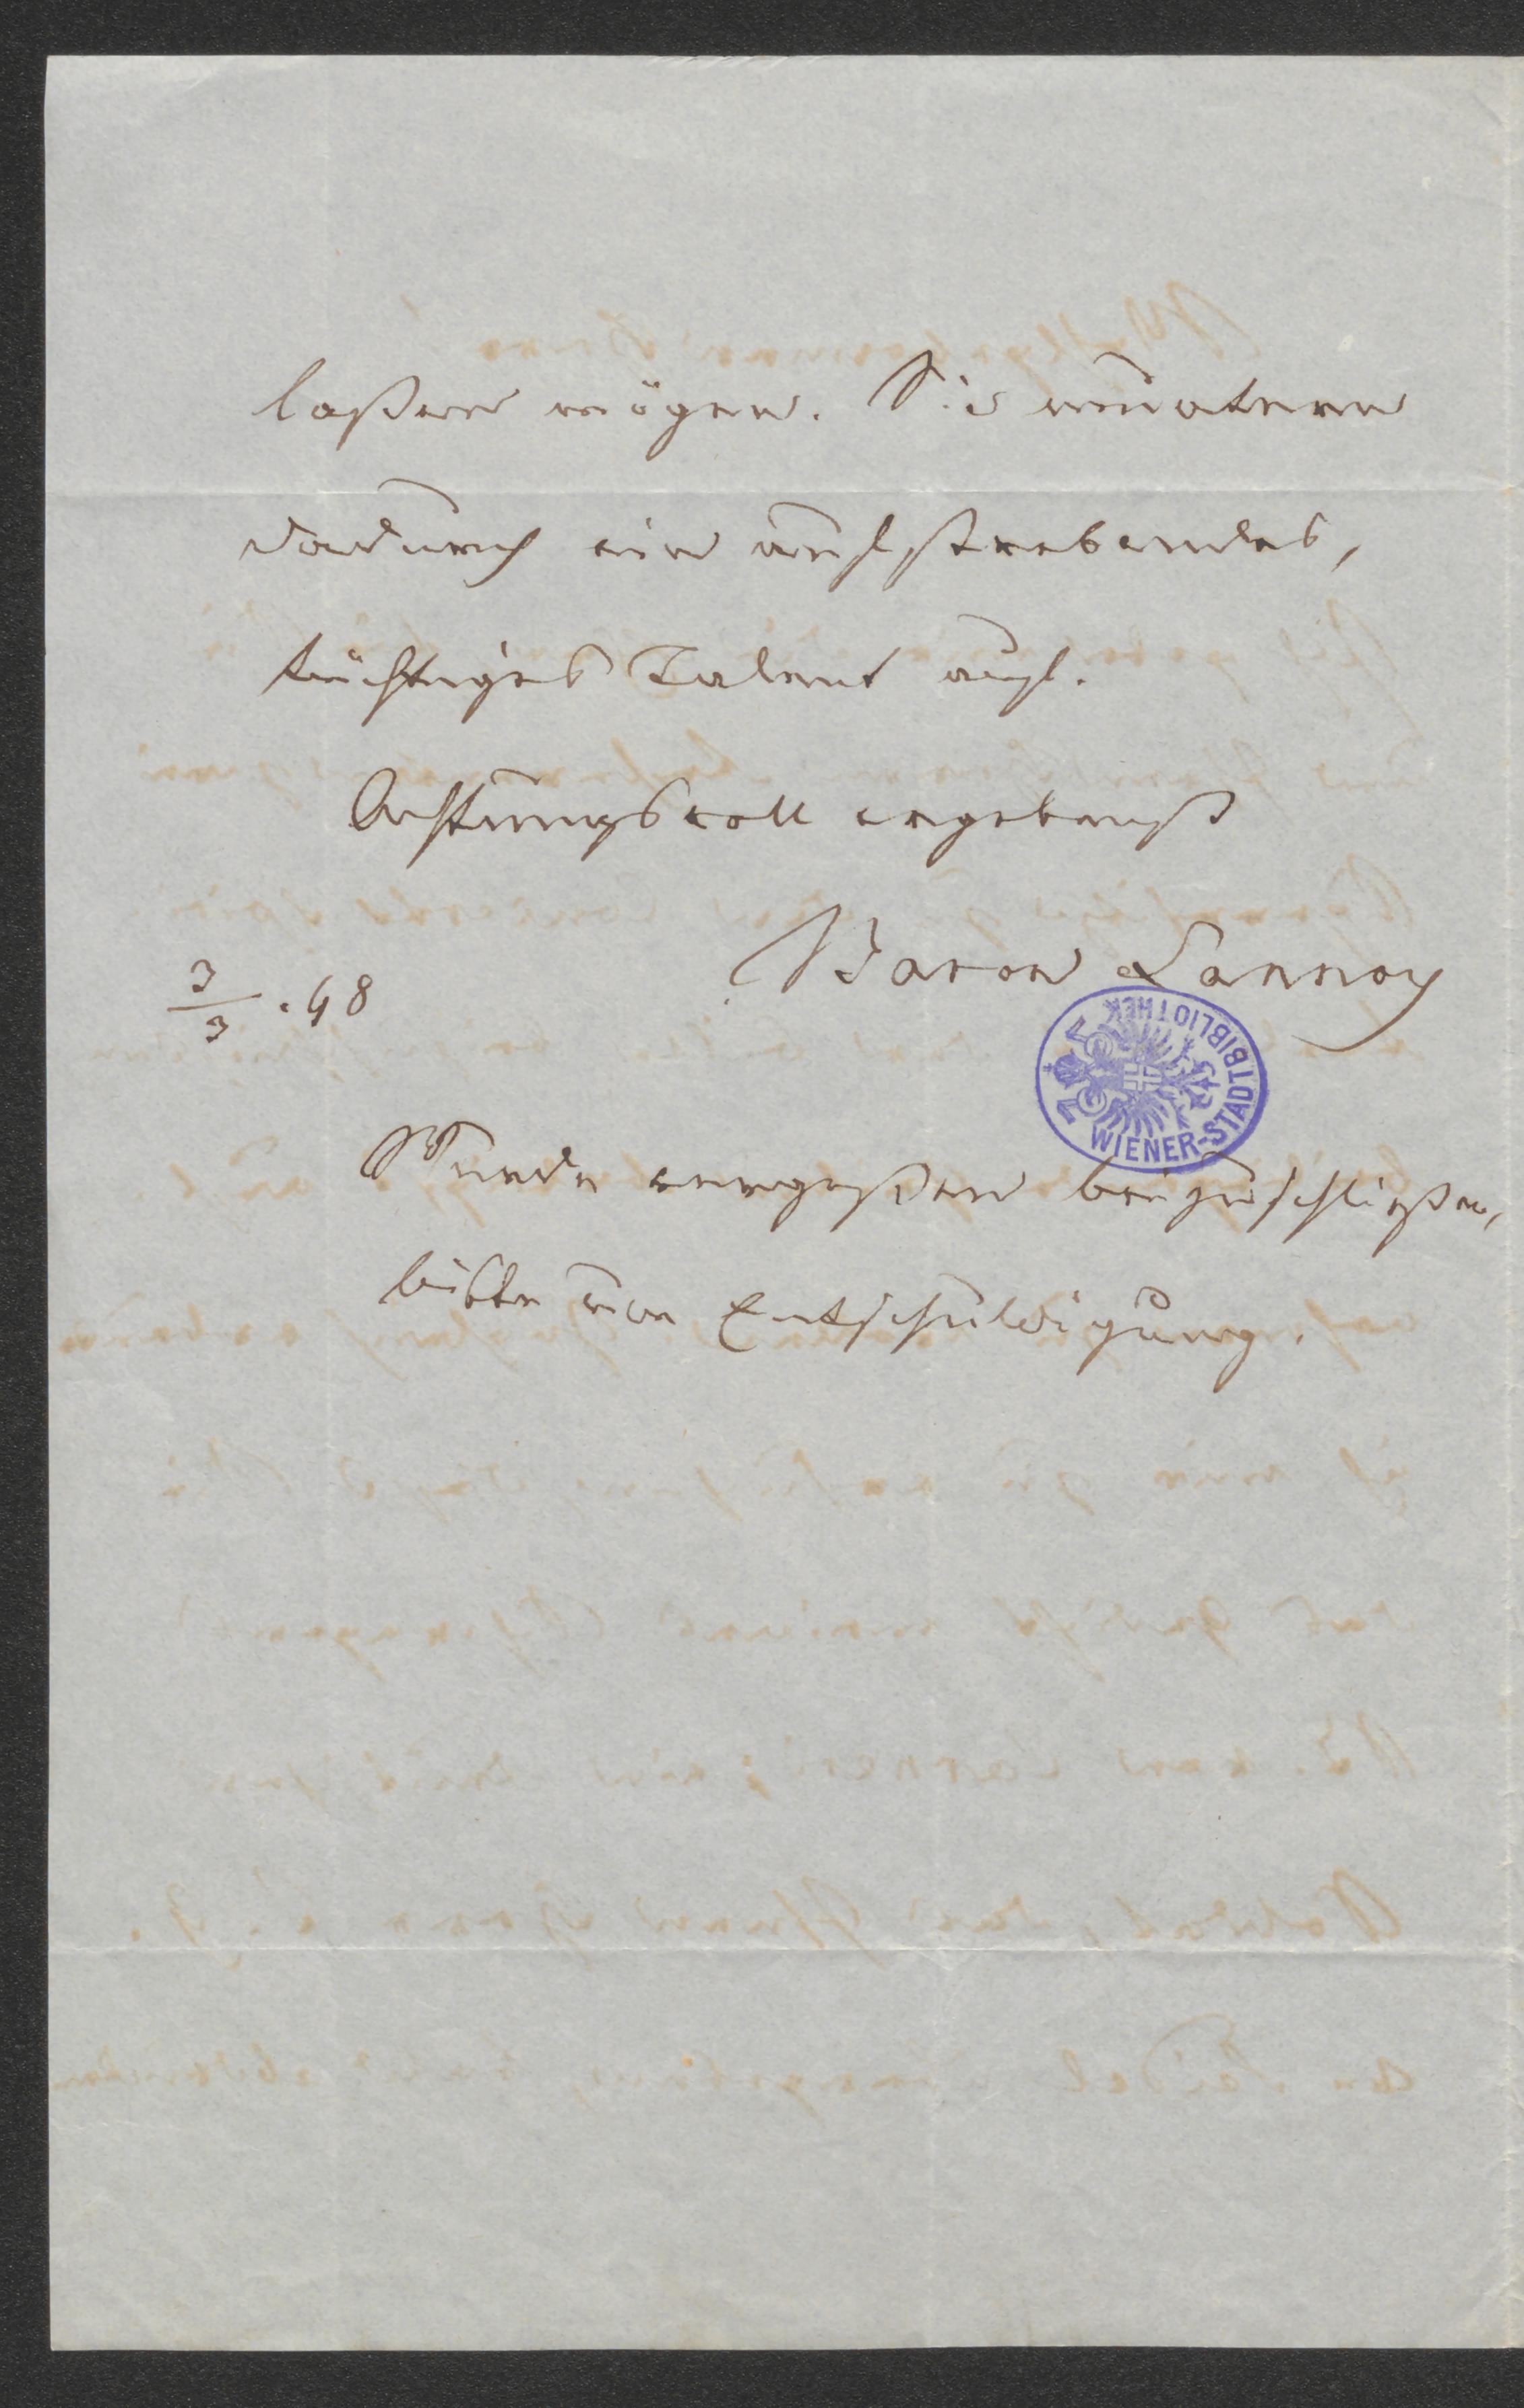 laßen mögen. Sie muntern
dadurch ein aufstrebendes,
tüchtiges Talent auf.
Achtungsvoll ergebenst
Baron Lannoy
3/3.48
WIENER-STADTBIBLIOTHEK
Wurde vergeßen beizuschließen,
bitte um Entschuldigung.